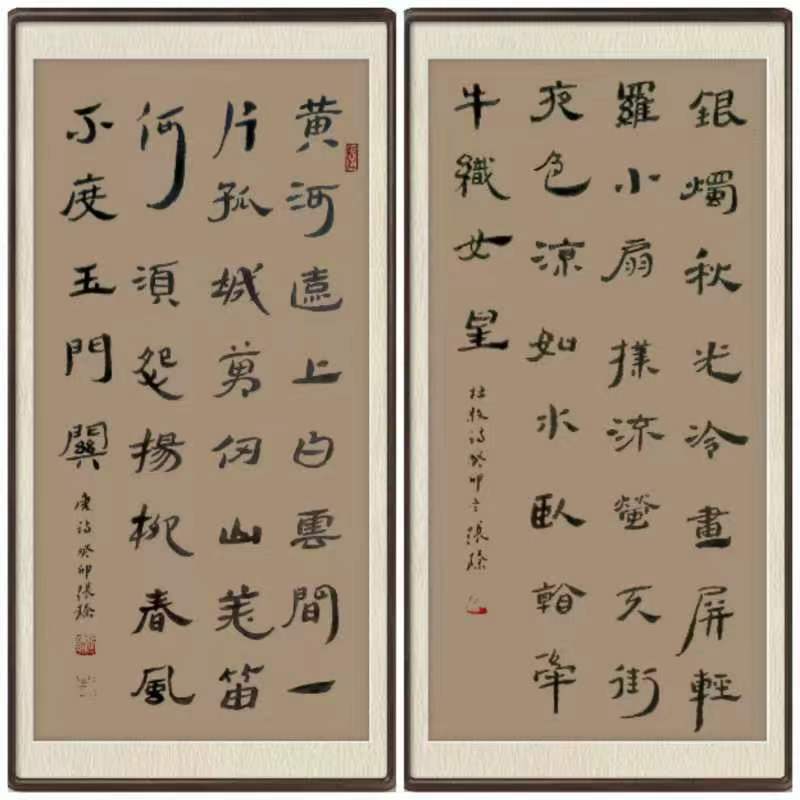 銀燭秋光冷畫屏輕
羅小扇撲流螢天街
夜色涼如水臥看牽
牛織女星
杜牧詩癸卯張
黃河遠上白雲間一
片孤城萬仞山羌笛
何須怨揚柳春風
不度玉門關
唐詩癸卯張